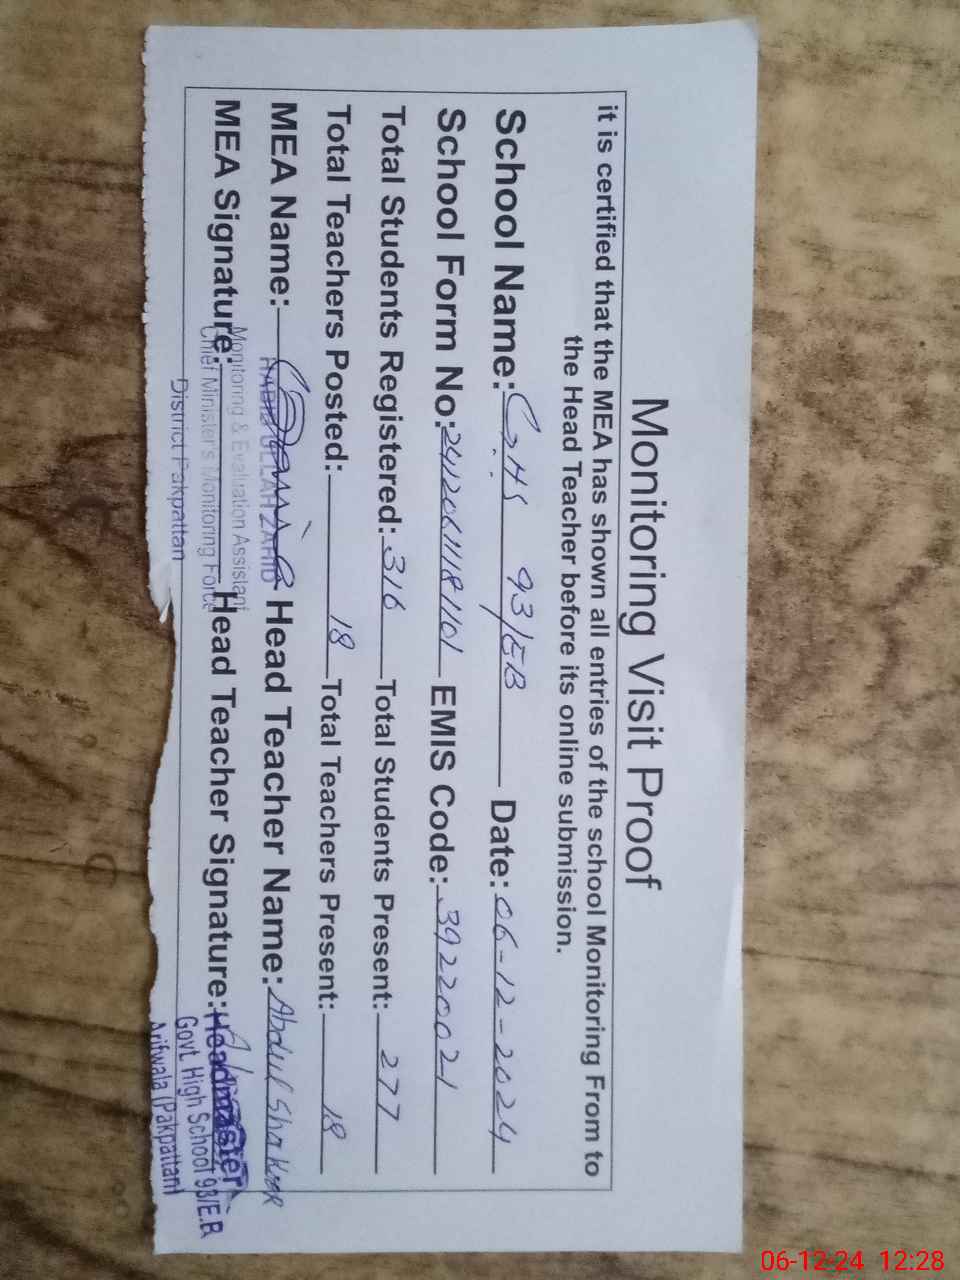 Monitoring Visit Proof
it is certified that the MEA has shown all entries of the school Monitoring From to
the Head Teacher before its online submission.
School Name: GHS 93/EB Date: 06-12-2024
School Form No: 24120611181101 EMIS Code: 39220021
Total Students Registered: 316 Total Students Present: 277
Total Teachers Posted: 18 Total Teachers Present: 18
MEA Name: Head Teacher Name: Abdul Shakoor
HABIB ULLAH ZAHID
MEA Signature: Head Teacher Signature:
Monitoring & Evaluation Assistant
Chief Minister's Monitoring Force
District Pakpattan
Headmaster
Govt High School 93/E.B
Arifwala (Pakpattan)
06-12-24 12:28